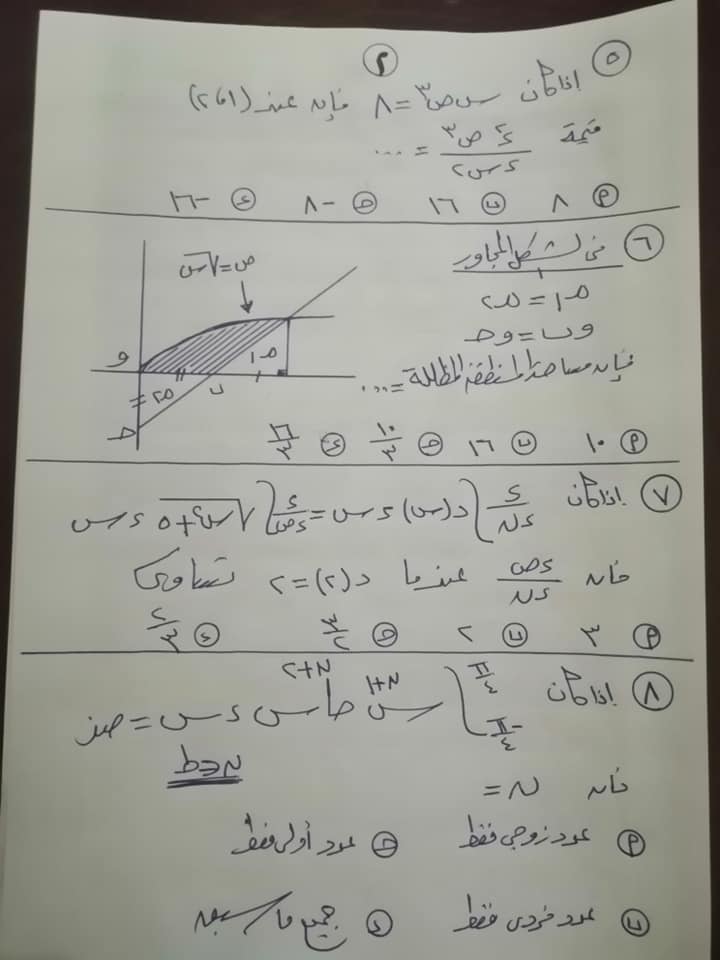 ٢
٥ إذا كان س ص٣ = ٨ فإنه عند (١، ٢)
قيمة د٢ص٣ / دس٢ = ...
أ ٨ ب ١٦ ج -٨ د -١٦
٦ في الشكل المجاور
م١ = م٢
وب = وج
فإن مساحة المنطقة المظللة = ....
ص = √س
م١
م٢
و
ب
ج
أ ١٠ ب ١٦ ج ١٠/٣ د ١٦/٣
٧ إذا كان د/دن ∫ د(س) دس = د/دص ∫ √س٢+٥ دس
فإن دص/دن عندما د(٢) = ٢ تساوى
أ ٣ ب ٢ ج ٣/٢ د ٢/٣
٨ إذا كان ∫ π/٤ -π/٤ س ن+١ جا ن+٢ س دس = صفر
ن ∈ ط
فإن ن =
أ عدد زوجي فقط ج عدد أولى فقط
ب عدد فردى فقط د جميع ما سبق